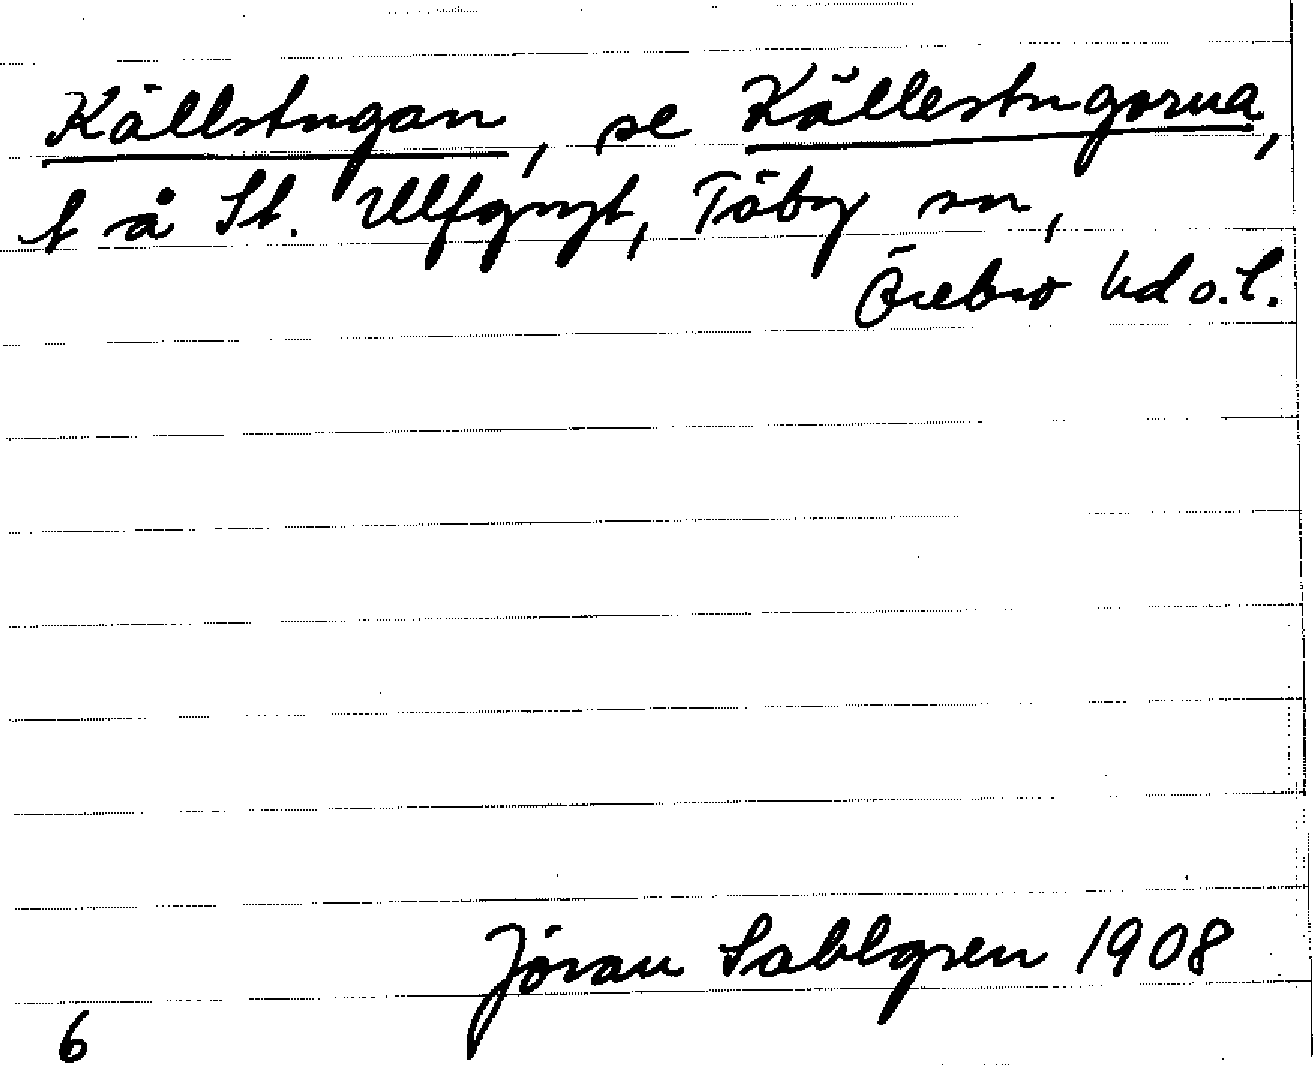 Källstugan, se Källestugorna,
t å St. Ulfgryt, Täby sn,
Örebro hd o. l.
Jöran Sahlgren 1908
6